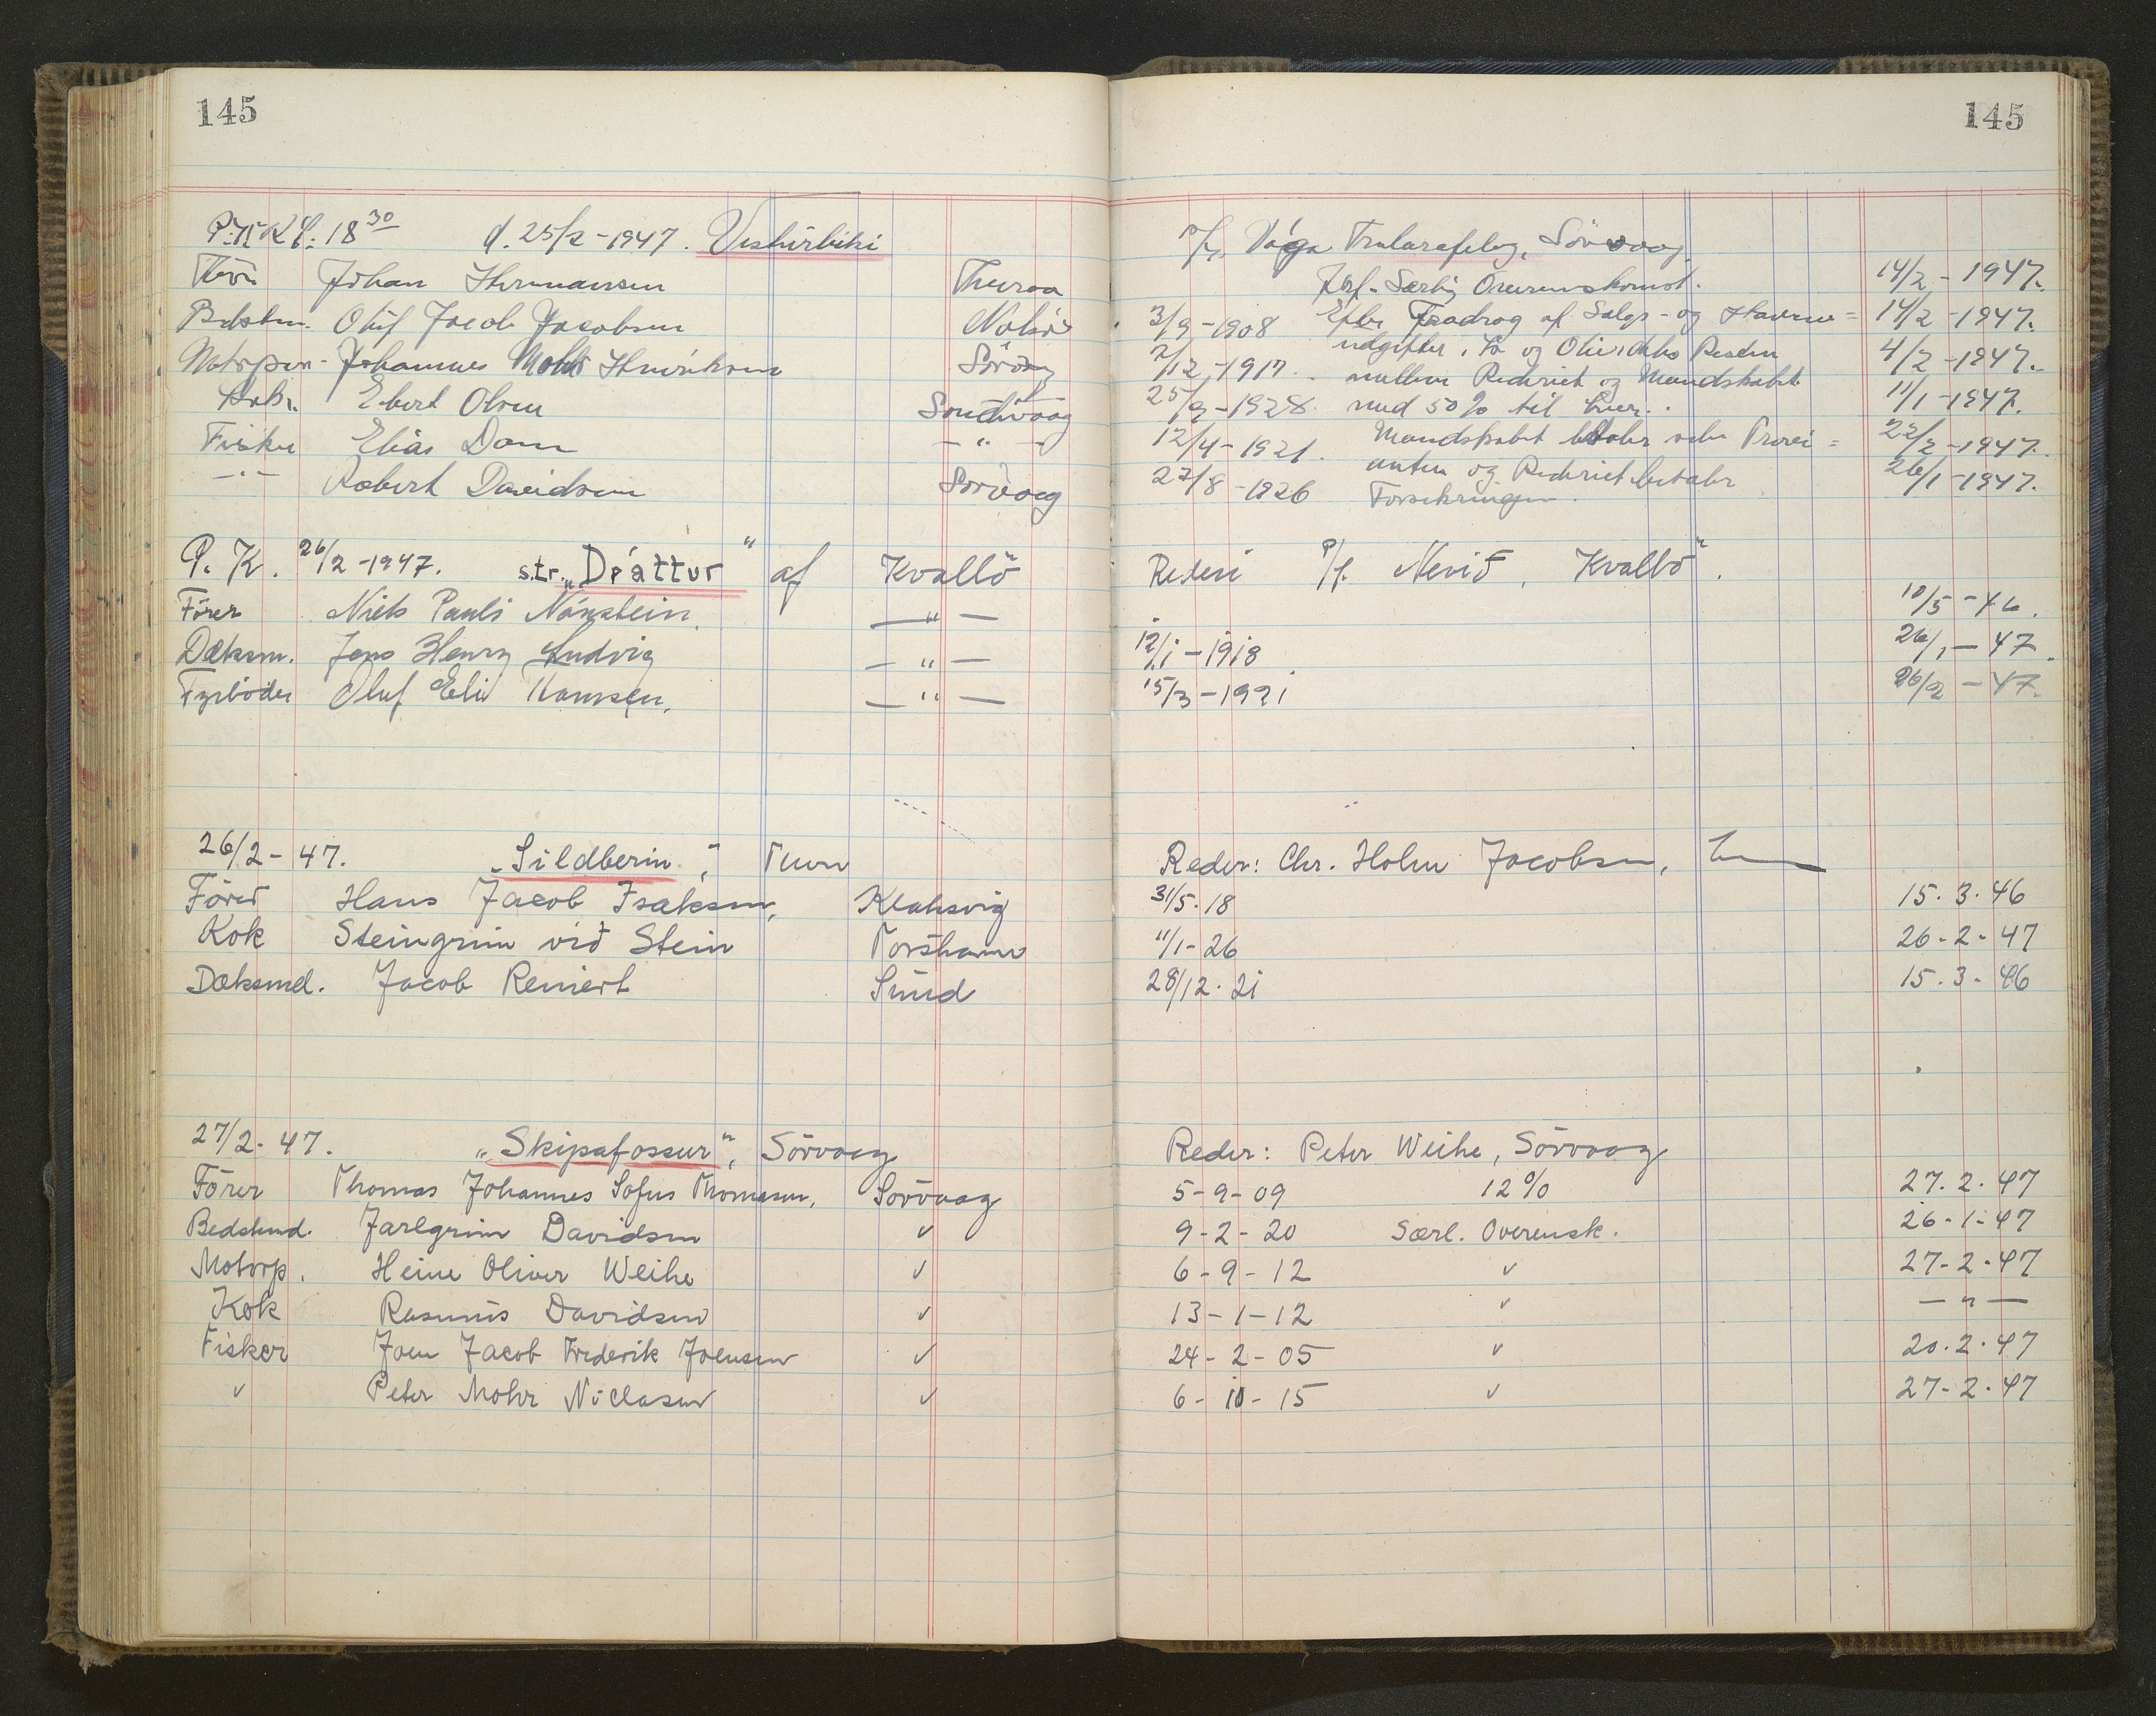 145
145
d. 25/2-1947. Vesturbiki
P/f. Vága Tralarafelag, Sörvaag.
Johan Hermansen
Særlig Overenskomst.
14/2-1947.
Oluf Jacob Jacobsen
3/9-1908 Efter Fradrag af Salgs- og Havne=
14/2-1947.
Johannes Mohr Henriksen Sörvaag
udgifter, Is og Olie, deles Resten
4/2-1947.
mellem Rederiet og Mandskabet
Ebert Olsen Sandvaag
25/9-1928. med 50% til hver.
11/1-1947.
Fisker Elias Dam - " -
12/4-1921. Mandskabet betaler selv Provi=
22/2-1947.
anten og Rederiet betaler
- " - Robert Davidsen Sörvaag
27/8-1926 Forsikringen.
26/1-1947.
P. K. 26/2-1947. s.tr. „Dráttur" af Kvalbö
Rederi P/f. Nevið, Kvalbö.
Förer Niels Pauli Nónstein. — " —
10/5-46.
Dæksm. Jens Henry Ludvig — " —
12/1-1918
26/1-47.
Fyrböder Oluf Eli Hansen. — " —
15/3-1921
26/2-47.
26/2-47. „Sildberin", Thvn
Reder: Chr. Holm Jacobsen,
Förer Hans Jacob Isaksen, Klaksvig
31/5.18
15.3.46
Kok Steingrim við Stein Torshavn
11/1-26
26-2-47
Dæksmd. Jacob Reinert Sund
28/12.21
15.3-46
27/2-47. „Skipafossur", Sörvaag
Reder: Peter Weihe, Sörvaag
Förer Thomas Johannes Sofus Thomasen, Sörvaag
5-9-09 12%
27.2.47
Bedstmd. Jarlgrim Davidsen "
9-2-20 Særl. Overensk.
26-1-47
Motorp. Heine Oliver Weihe "
6-9-12 "
27-2-47
Kok Rasmus Davidsen "
13-1-12 "
— " —
Fisker Joen Jacob Frederik Joensen "
24-2-05 "
20.2.47
" Peter Mohr Niclasen "
6-10-15 "
27-2-47